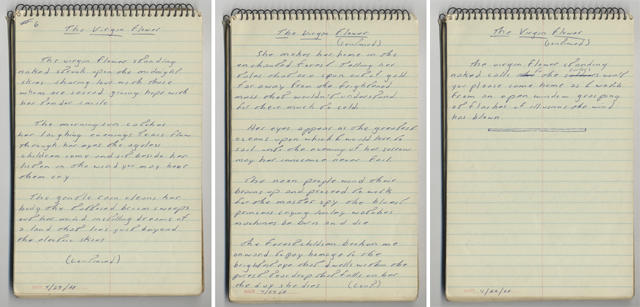 6
The Virgin Flower
The virgin flower standing
naked stands upon the midnight
skies sharing her
where are sacred giving hope with
her tender smile
The morning sun catches
her laughing evenings tears flow
through her eyes the ageless
children come and sit beside her
listen in the wind you may hear
them cry
The gentle rain cleans her
body the tattered broom sweeps
out her mind instilling dreams of
a land that lies just beyond
the electric skies
(continued)
4/23/68
The Virgin Flower
(continued)
She makes her home in the
enchanted forest telling her
tales that are spun out of gold
far away from the frightened
mass that wouldn't understand
for theirs much to cold
Her eyes appear as the greatest
oceans upon which I would love to
sail into the of her sorrow
may her innocence never fail
The neon people wind their
brains up and proceed to walk
for the master spy the blind
princess crying Sunday watches
machines be born and die
The forest children beckon me
onward to pay homage to the
bright of eye that dwells within the
purest teardrop that falls on her
the day she dies (cont)
4/23/68
The Virgin Flower
(continued)
The virgin flower standing
naked calls to the would
you please come home as I watch
from an open window grasping
at flashes of illusions the wind
has blown
4/23/68